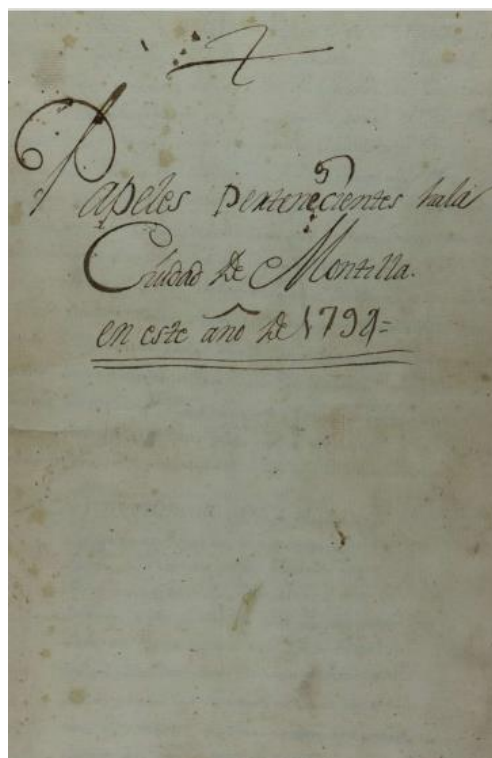 Papeles pertenecientes hala
Ciudad de Montilla.
en este año de 1794=